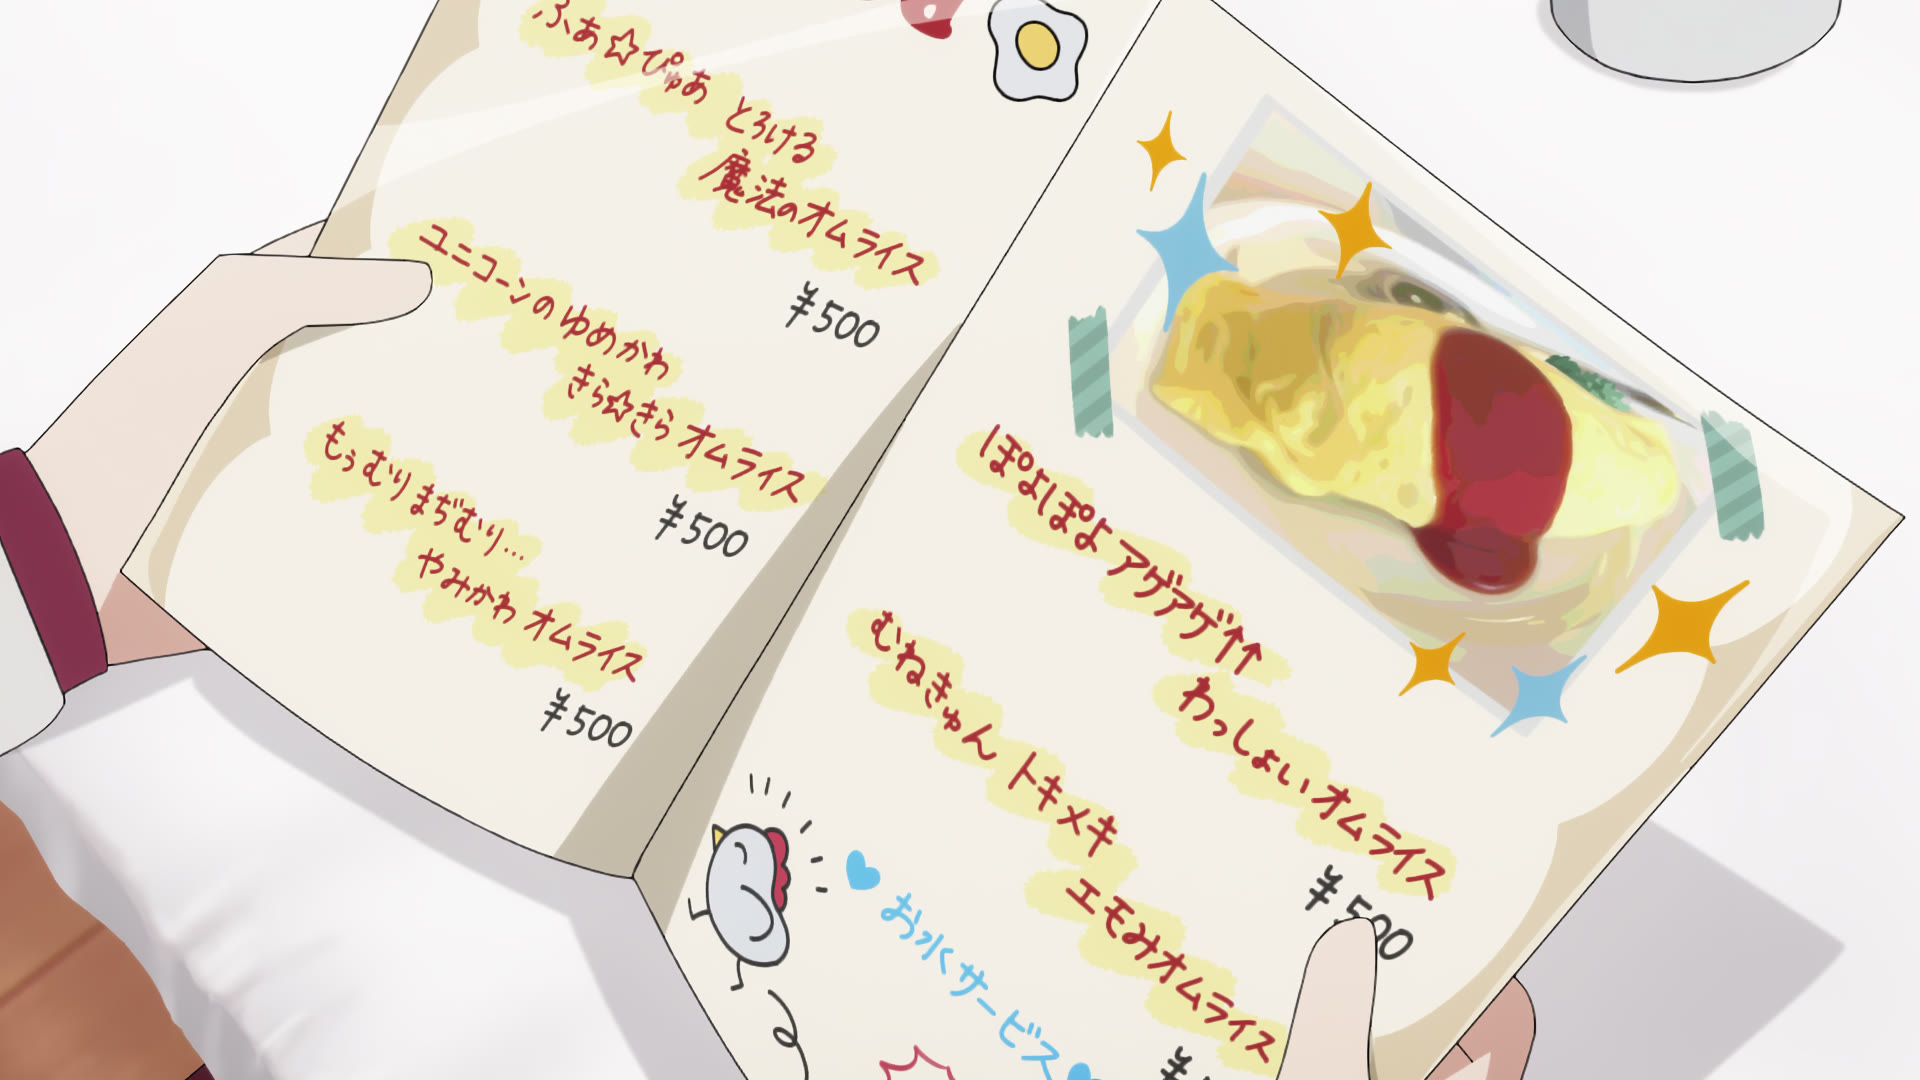 ふぁ☆ぴゅあ とろける
魔法のオムライス
¥500
ユニコーンの ゆめかわ
きら☆きら オムライス
¥500
もぅむりまぢむり…
やみかわ オムライス
¥500
ぽよぽよ アゲアゲ↑↑
わっしょいオムライス
¥500
むねきゅん トキメキ
エモみオムライス
¥
お水サービス